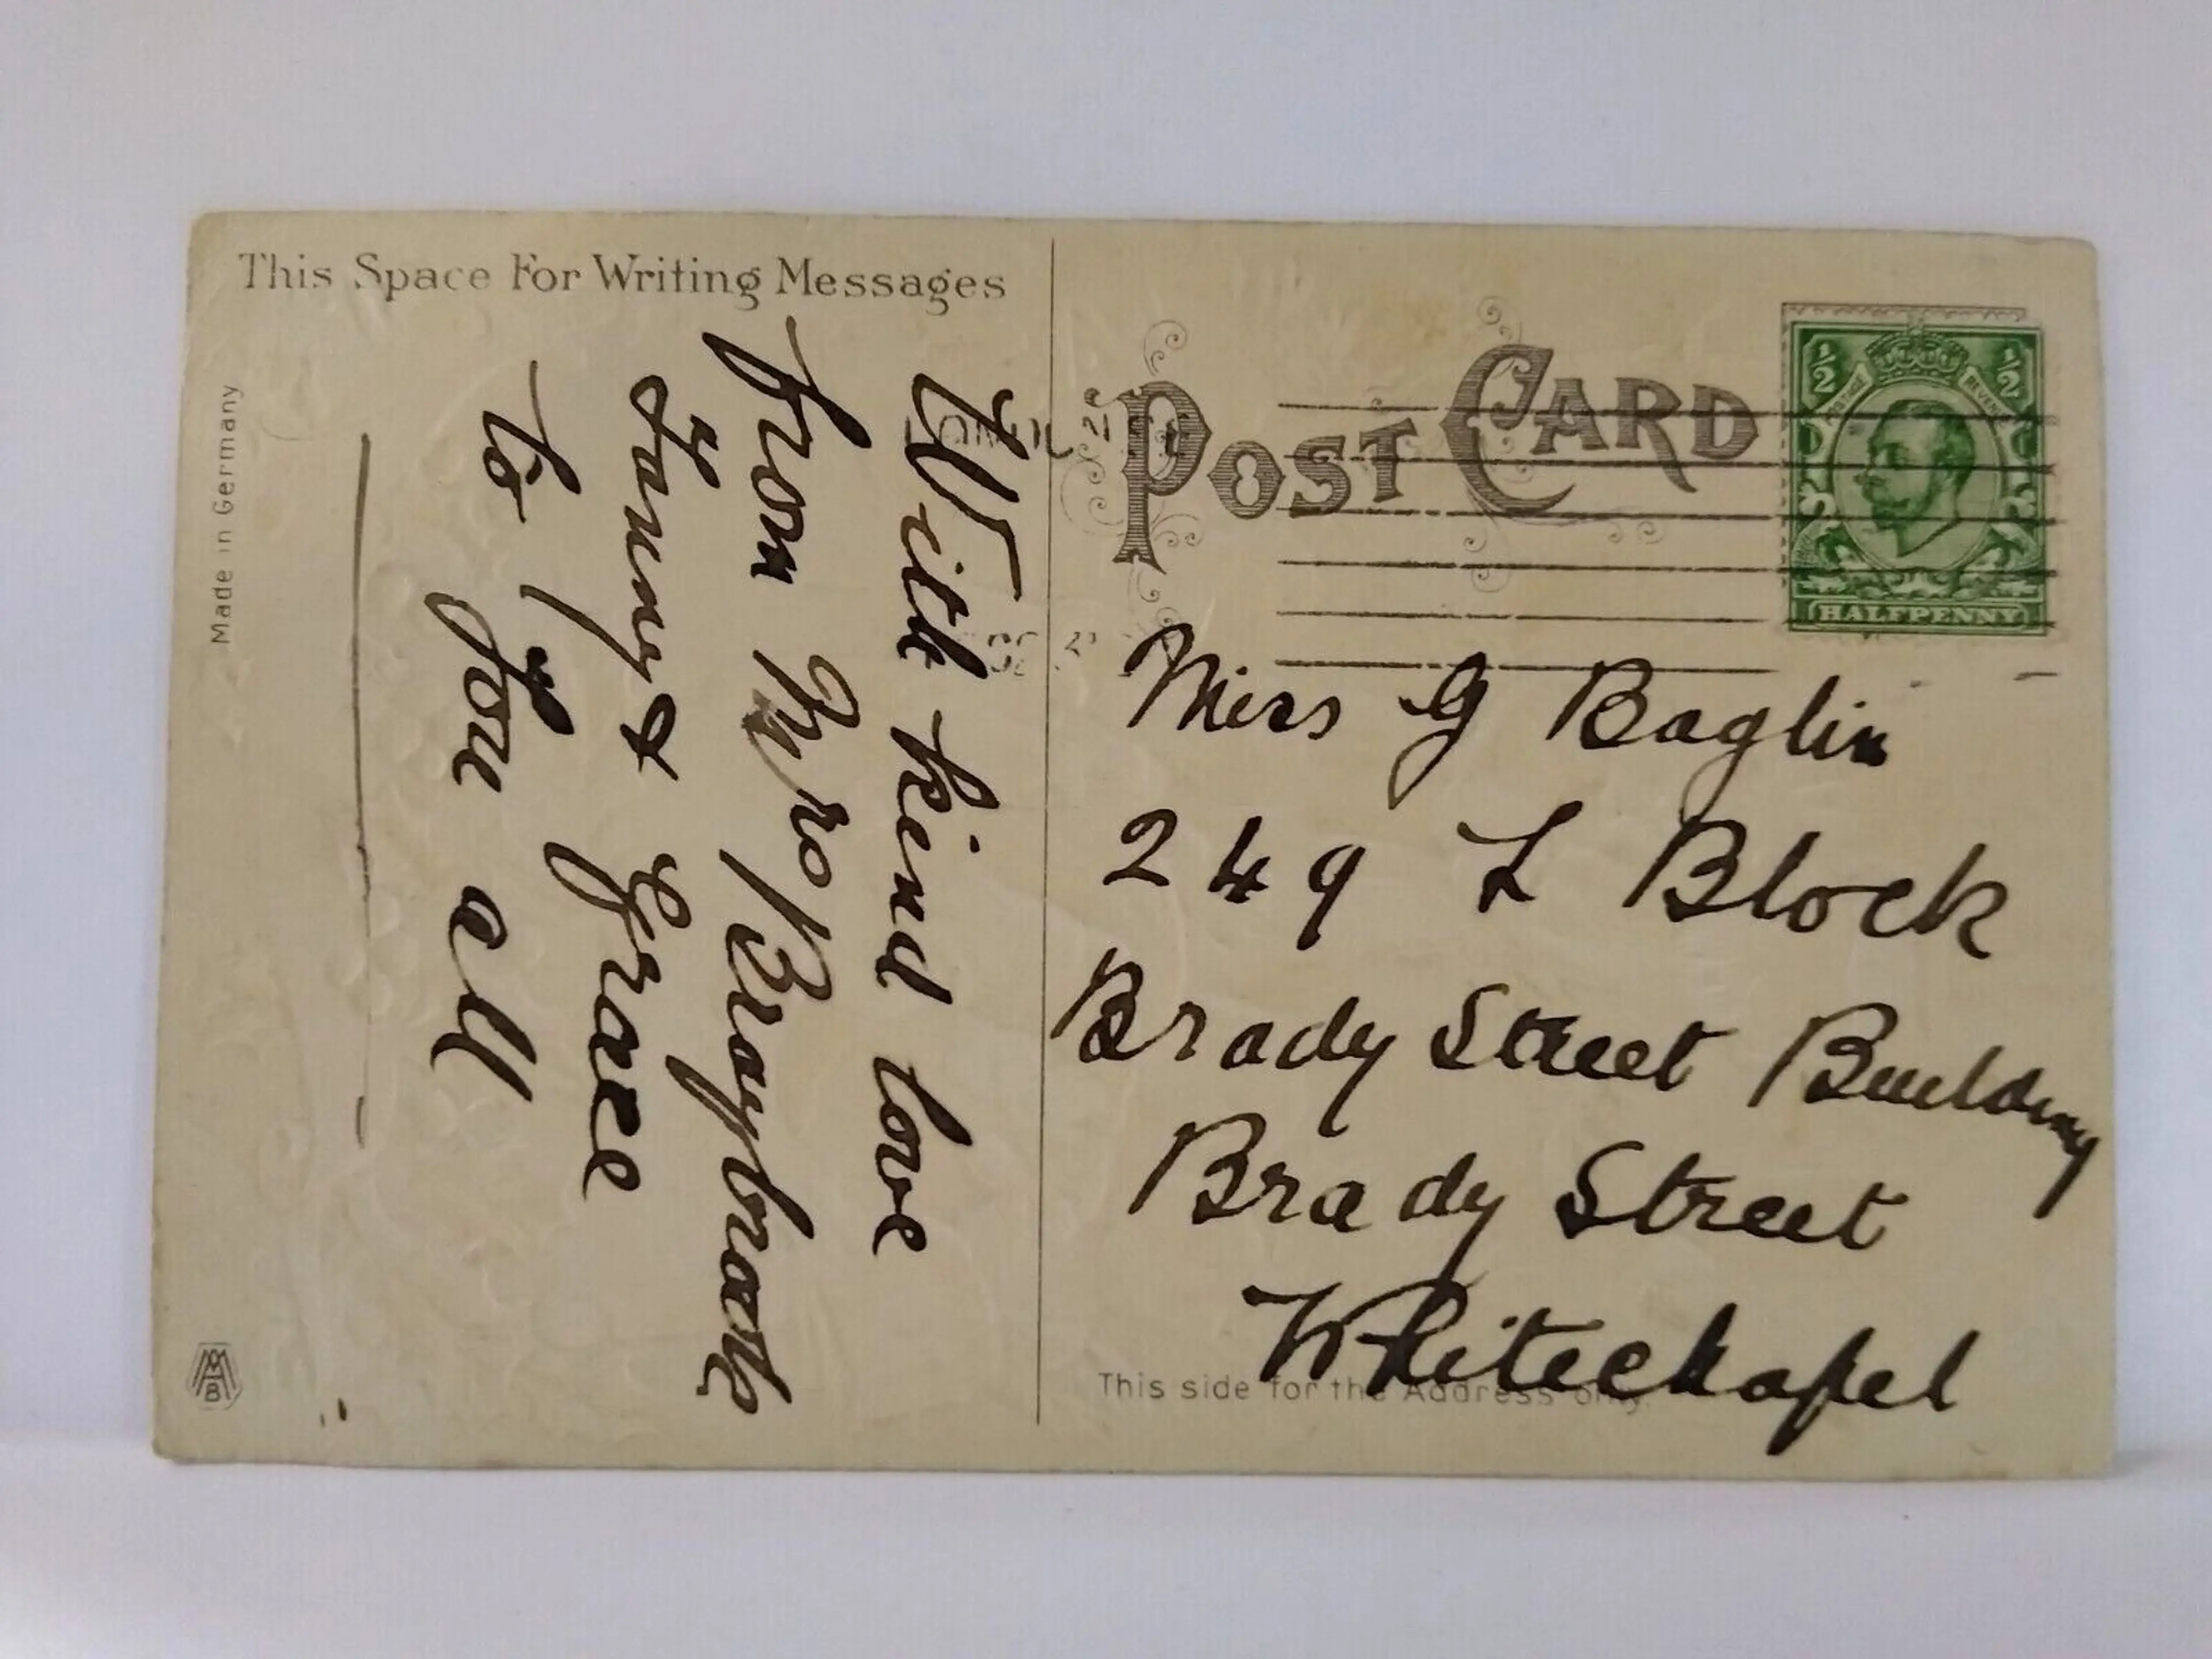 This Space For Writing Messages
With kind love
from Mrs Braybrook
Fanny & Grace
to you all
Made in Germany
MAB
POST CARD
1/2 1/2
POSTAGE REVENUE
HALFPENNY
Miss G Baglin
249 L Block
Brady Street Building
Brady Street
Whitechapel
This side for the Address only.